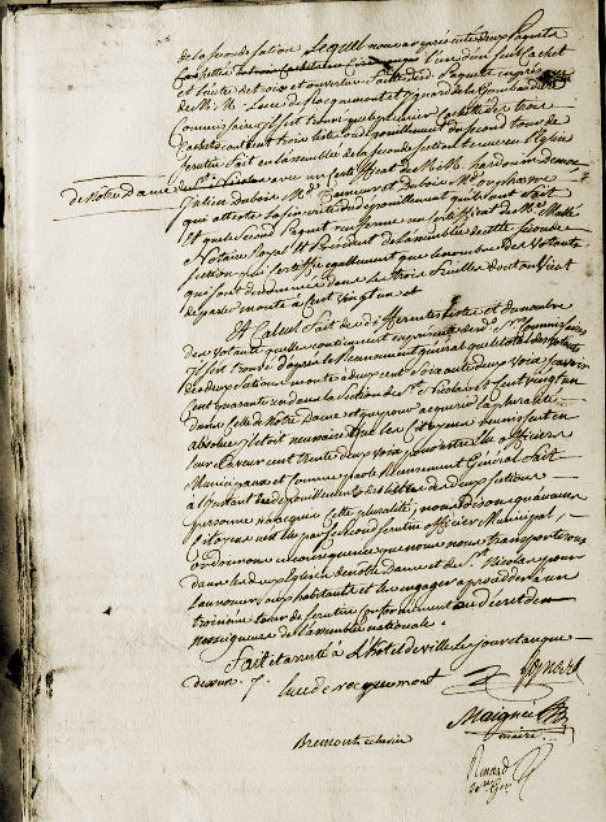 de la seconde section Lequel nous a représenté deux Paquets
Cachettés l'un d'un seul Cachet
et l'autre de trois et ouverture faite desd. Paquets en présence
de M.M. Luce de Rocquemont et Ignard de la Gombaude
Commissaires, il s'est trouvé que le premier Cachetté de trois
Cachets contient trois listes ou dépouillement du second tour de
scrutin fait en l'assemblée de la seconde section tenue en l'Eglise
de Notre Dame
de St. Nicolas avec un Certificat de M.M. hardouin
Julien dubois Md. et dubois Md. orphevre
qui atteste la sincérité du dépouillement qu'ils ont fait
Et que le Second Paquet renferme un Certificat de Me. Mallé
Notaire Royal Et Président de l'assemblée de cette seconde
section qui certiffie egallement que le nombre des Votants
qui sont dénommés dans les trois feuilles dont on vient
de parler monte à Cent Vingt un et
Et Calcul fait des differentes listes et du nombre
des Votants qu'elles contiennent en présence desd. Srs. Commissaires
Il s'est trouvé d'après le Recensement général que le total des Votants
des deux sections monte à deux cent soixante deux Voix savoir
Cent quarante un dans la section de St. Nicolas et Cent vingt un
dans celle de Notre Dame et que pour acquerir la pluralité
absolue il etoit necessaire que les Citoyens reunissent en
leur faveur cent trente deux voix pour estre Elus officiers
Municipaux et comme par le Recensement Général fait
à l'instant du dépouillement des billets des deux sections
personne n'a acquis cette pluralité, nous disons qu'aucun
Citoyen n'est élu par ce second scrutin officier Municipal,
ordonnons en conséquence que nous nous transporterons
dans les deux Eglises de notre Dame et de St. Nicolas pour
l'annoncer aux habitants et les engager à procedder à un
troisième tour de scrutin conformément au décret de
nosseigneurs de l'assemblée nationale.
Fait et arresté à L'hotel de ville les jour et an que
dessus. /.
luce de rocquemont
Ignard
Maignée
maire
Bremont echevin
Renard